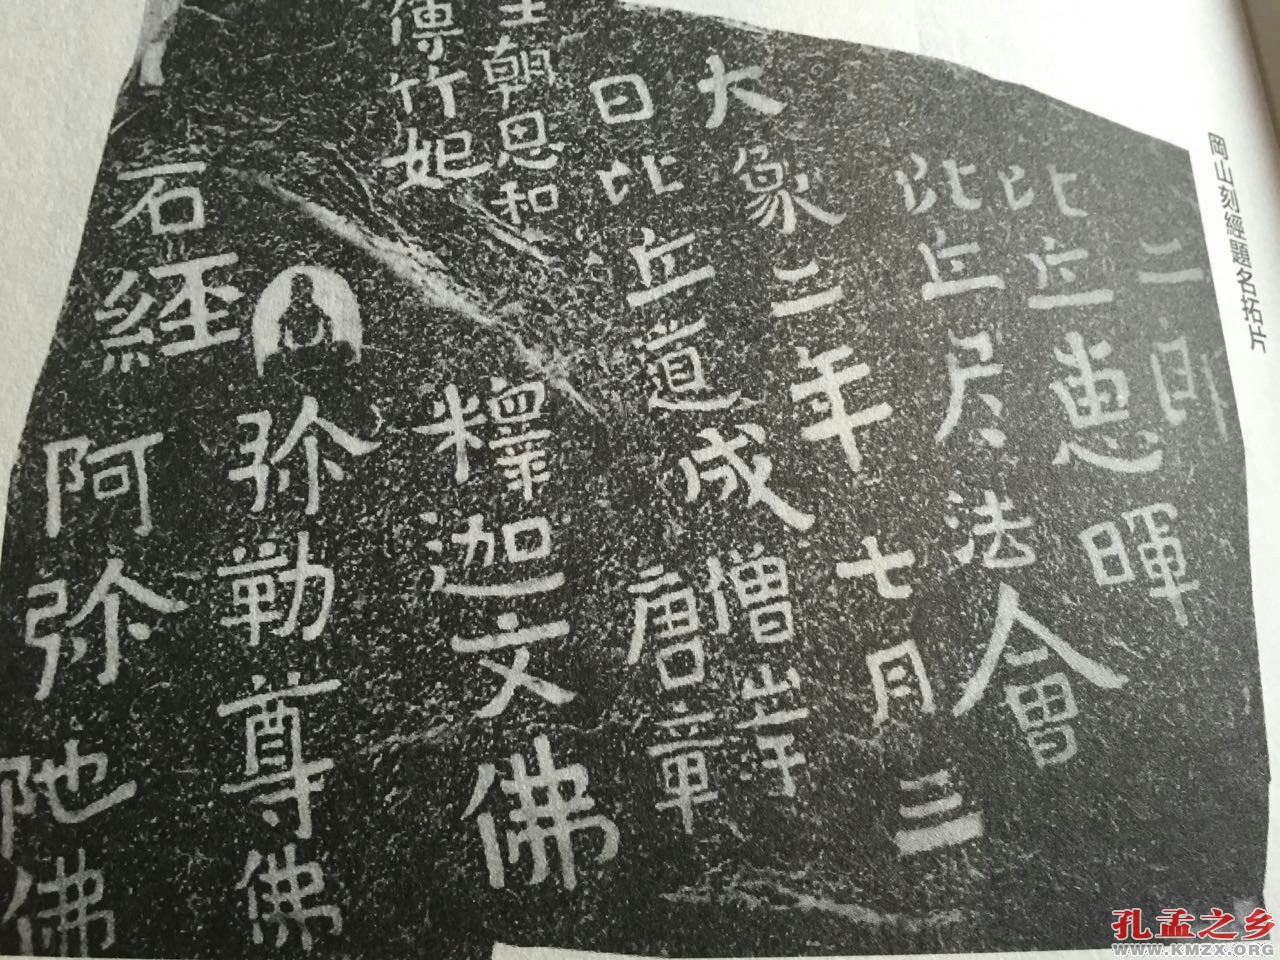 岡山刻經題名拓片
二
比丘惠暉
比丘尼法會
大象二年七月三
日比丘道成
僧岸
唐章
王朝恩和
傅竹妃
釋迦文佛
弥勒尊佛
阿弥陁佛
石經
孔孟之乡
WWW.KMZX.ORG